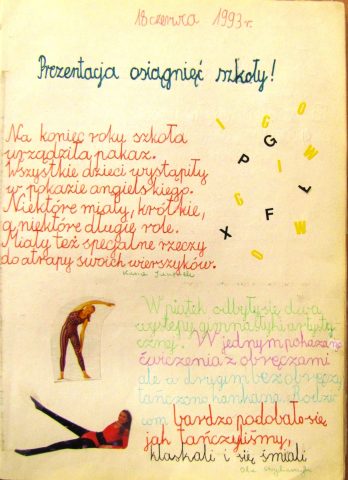 18 czerwca 1993 r.
Prezentacja osiągnięć szkoły!
Na koniec roku szkoła
urządziła pokaz.
Wszystkie dzieci wystąpiły
w pokazie angielskiego.
Niektóre miały, krótkie,
a niektóre długie role.
Miały też specjalne rzeczy
do atrapy swoich wierszyków.
Kasia
I G C O W
P G
I I
F L
X G O W
W piątek odbyły się dwa
występy gimnastyki artysty-
cznej. W jednym pokazano
ćwiczenia z obręczami
ale w drugim bez obręczy
tańczono kankana. Rodzi-
com bardzo podobało się
jak tańczyliśmy,
klaskali i się śmiali
Ola